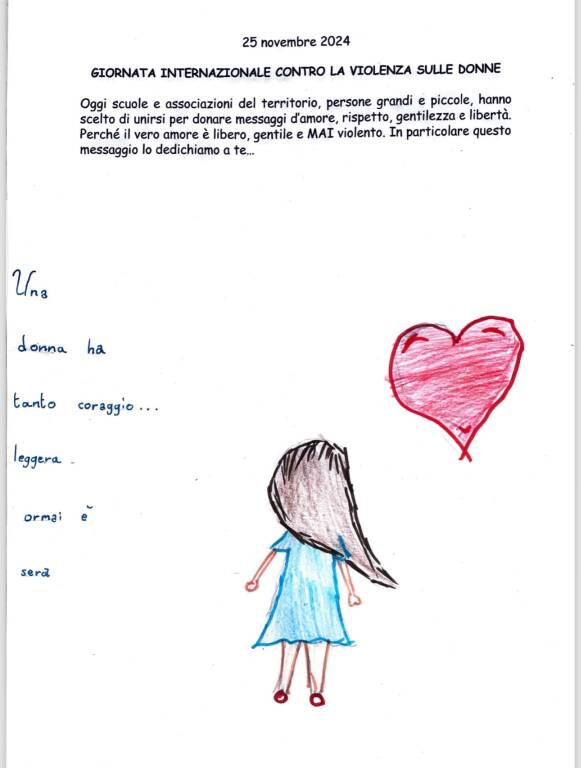 25 novembre 2024
GIORNATA INTERNAZIONALE CONTRO LA VIOLENZA SULLE DONNE
Oggi scuole e associazioni del territorio, persone grandi e piccole, hanno
scelto di unirsi per donare messaggi d'amore, rispetto, gentilezza e libertà.
Perché il vero amore è libero, gentile e MAI violento. In particolare questo
messaggio lo dedichiamo a te...
Una
donna ha
tanto coraggio...
leggera
ormai è
sera